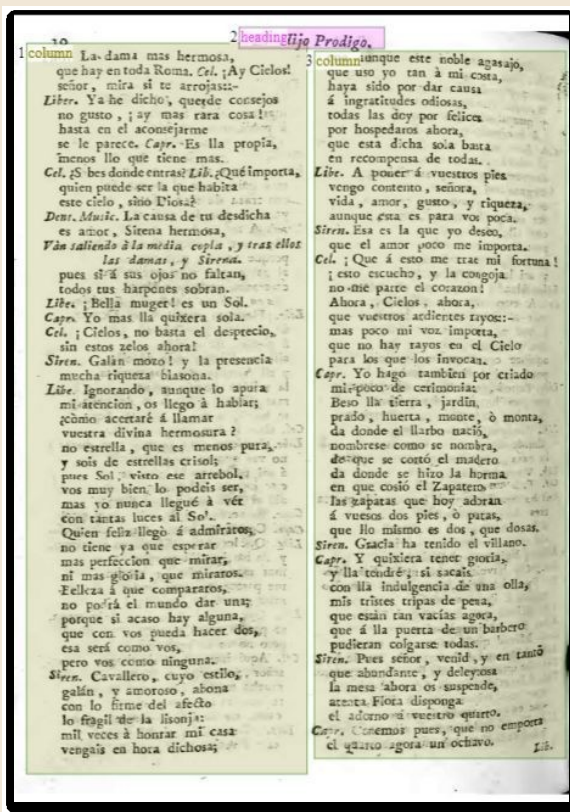 10
2 heading lijo Prodigo.
1 column La dama mas hermosa,
que hay en toda Roma. Cel. ¡Ay Cielos!
señor, mira si te arrojas::-
Liber. Ya he dicho, que de consejos
no gusto, ¡ay mas rara cosa!
hasta en el aconsejarme
se le parece. Capr. Es lla propia,
menos llo que tiene mas.
Cel. ¿S bes donde entras? Lib. ¿Qué importa,
quien puede ser la que habita
este cielo, sino Diosa?
Dent. Music. La causa de tu desdicha
es amor, Sirena hermosa,
Vàn saliendo à la media copla, y tras ellos
las damas, y Sirena.
pues si á sus ojos no faltan,
todos tus harpones sobran.
Libe. ¡Bella muger! es un Sol.
Capr. Yo mas lla quixera sola.
Cel. ¡Cielos, no basta el desprecio,
sin estos zelos ahora!
Siren. Galán mozo! y la presencia
mucha riqueza blasona.
Libe. Ignorando, aunque lo apura
mi atencion, os llego à hablar;
¿còmo acertaré á llamar
vuestra divina hermosura?
no estrella, que es menos pura,
y sois de estrellas crisol;
pues Sol, visto ese arrebol,
vos muy bien lo podeis ser,
mas yo nunca llegué à vér
con tantas luces al So'.
Quien feliz llegó á admiraros,
no tiene ya que esperar
mas perfeccion que mirar,
ni mas gloria, que miraros.
Belleza á que compararos,
no podrá el mundo dar una;
porque si acaso hay alguna,
que con vos pueda hacer dos,
esa será como vos,
pero vos como ninguna.
Siren. Cavallero, cuyo estilo,
galán, y amoroso, abona
con lo firme del afecto
lo fragil de la lisonja:
mil veces à honrar mi casa
vengais en hora dichosa;
3 column aunque este noble agasajo,
que uso yo tan à mi costa,
haya sido por dar causa
á ingratitudes odiosas,
todas las doy por felices
por hospedaros ahora,
que esta dicha sola basta
en recompensa de todas.
Libe. A poner á vuestros pies
vengo contento, señora,
vida, amor, gusto, y riqueza,
aunque esta es para vos poca.
Siren. Esa es la que yo deseo,
que el amor poco me importa.
Cel. ¡Que á esto me trae mi fortuna!
¡esto escucho, y la congoja
no me parte el corazon!
Ahora, Cielos, ahora,
que vuestros ardientes rayos::-
mas poco mi voz importa,
que no hay rayos en el Cielo
para los que los invocan.
Capr. Yo hago tambien por criado
mi poco de cerimonia:
Beso lla tierra, jardin,
prado, huerta, monte, ò monta,
da donde el llarbo nació,
nombrese como se nombra,
de que se cortó el madero
da donde se hizo la horma
en que cosió el Zapatero
las zapatas que hoy adoran
á vuesos dos pies, ò patas,
que llo mismo es dos, que dosas.
Siren. Gracia ha tenido el villano.
Capr. Y quixiera tener gloria,
y lla tendré, si sacais
con lla indulgencia de una olla,
mis tristes tripas de pena,
que están tan vacías agora,
que á lla puerta de un barbero
pudieran colgarse todas.
Siren. Pues señor, venid, y en tantò
que abundante, y deleytosa
la mesa ahora os suspende,
atenta Flora disponga
el adorno á vuestro quarto.
Capr. Cenemos pues, que no emporta
el quarto agora un ochavo.
Lib.